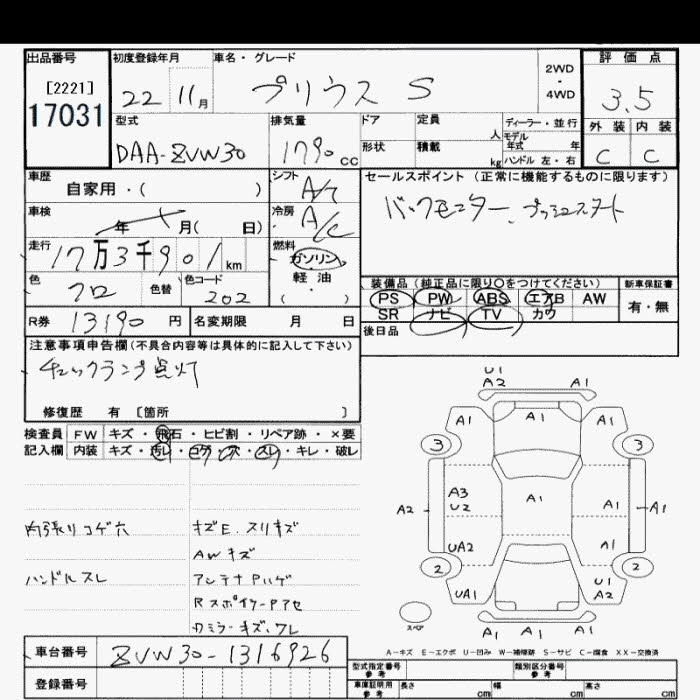 出品番号 初度登録年月 車名・グレード 評価点
[2221] 22 11月 プリウス S 2WD・4WD 3.5
17031
型式 排気量 ドア 定員 人 ディーラー・並行 外装 内装
DAA-ZVW30 1790cc 形状 積載 kg モデル年式 年 ハンドル 左・右 C C
車歴 シフト セールスポイント (正常に機能するものに限ります)
自家用・( ) A/T バックモニター、プッシュスタート
車検 冷房
年 月( 日) A/C
走行 燃料
17万3千901km ガソリン
色 色替 色コード 軽油 装備品 (純正品に限り○をつけてください) 新車保証書
クロ 202 ( ) PS PW ABS エアB AW 有・無
R券 13190円 名変期限 月 日 SR ナビ TV カワ
後日品
注意事項申告欄(不具合内容等は具体的に記入して下さい)
チェックランプ点灯
修復歴 有 [箇所 ]
検査員 FW キズ・飛石・ヒビ割・リペア跡・×要
記入欄 内装 キズ・汚レ・コゲ・穴・スレ・キレ・破レ
内張りコゲ穴 キズE.スリキズ
AWキズ
ハンドルスレ アンテナPハゲ
RスポイラーPアセ
ワレ
U1
A2 A1
A1 A1 A1
3 3
A3
U2 A1 A1
A2 A1
UA2 A1
2 2
UA1 U1
A2
スペア
A1 A1 A1
A-キズ E-エクボ U-凹み W-補修跡 S-サビ C-腐食 XX-交換済
車台番号 ZVW30-1316926
登録番号
型式指定番号 参考 類別区分番号 参考
車庫証明用 参考 長さ cm 幅 cm 高さ cm